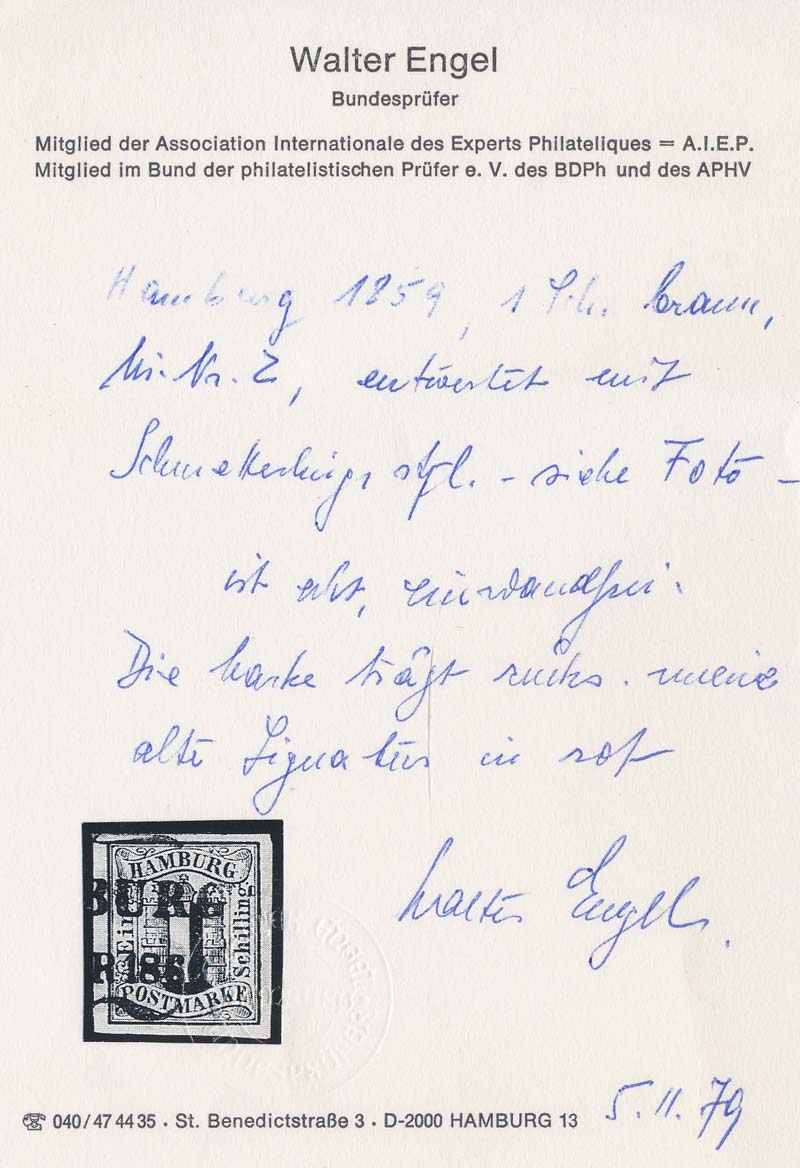 Walter Engel
Bundesprüfer
Mitglied der Association Internationale des Experts Philateliques = A.I.E.P.
Mitglied im Bund der philatelistischen Prüfer e. V. des BDPh und des APHV
Hamburg 1859, 1 Sch. braun,
Mi. Nr. 2, entwertet mit
stpl. - siehe Foto -
ist echt, einwandfrei.
Die Marke trägt rücks. meine
alte Signatur in rot
HAMBURG
BURG
Ein
1
Schilling
R 186
POSTMARKE
Walter Engel.
5.11.79
☎ 040/47 44 35 · St. Benedictstraße 3 · D-2000 HAMBURG 13